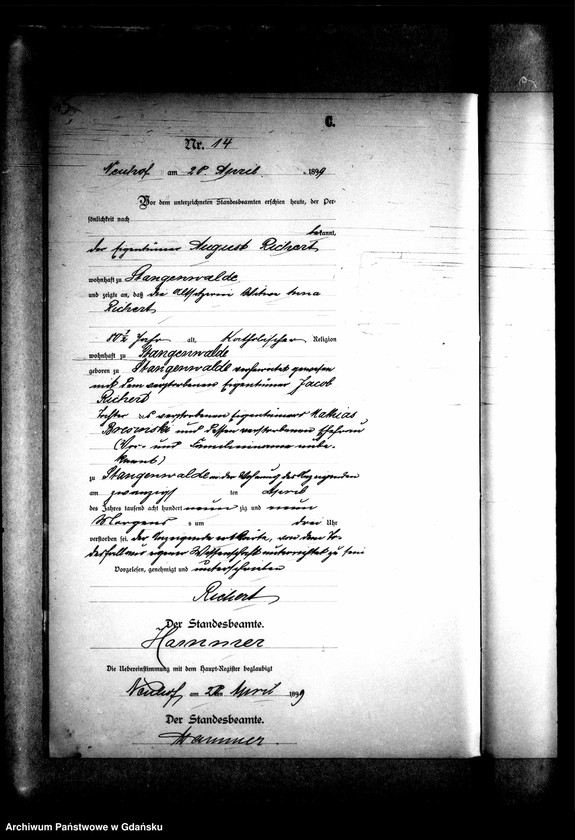 C.
Nr. 14
Neuhof am 28 April 1899
Vor dem unterzeichneten Standesbeamten erschien heute, der Per-
sönlichkeit nach
bekannt,
der Eigentümer August Richert
wohnhaft zu Stangenwalde
und zeigte an, daß die Altsitzerin Witwe Anna
Richert
80½ Jahr alt, Katholischer Religion
wohnhaft zu Stangenwalde
geboren zu Stangenwalde verheiratet gewesen
mit dem verstorbenen Eigentümer Jacob
Richert
Tochter des verstorbenen Eigentümers Mathias
und dessen verstorbenen Ehefrau
(Vor- und Familienname unbe-
kannt)
zu Stangenwalde in der Wohnung des Anzeigenden
am zwanzigst ten April
des Jahres tausend acht hundert neun zig und neun
Morgens um drei Uhr
verstorben sei. der Anzeigende erklärte, von dem To-
desfall aus eigener Wissenschaft unterrichtet zu sein
Vorgelesen, genehmigt und unterschrieben
Richert
Der Standesbeamte.
Hammer
Die Uebereinstimmung mit dem Haupt-Register beglaubigt
Neuhof am 28 April 1899
Der Standesbeamte.
Hammer
Archiwum Państwowe w Gdańsku